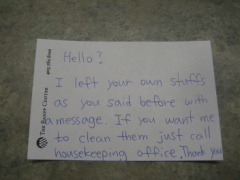 Hello?
I left your own stuffs
as you said before with
a message. If you want me
to clean them just call
housekeeping office. Thank you